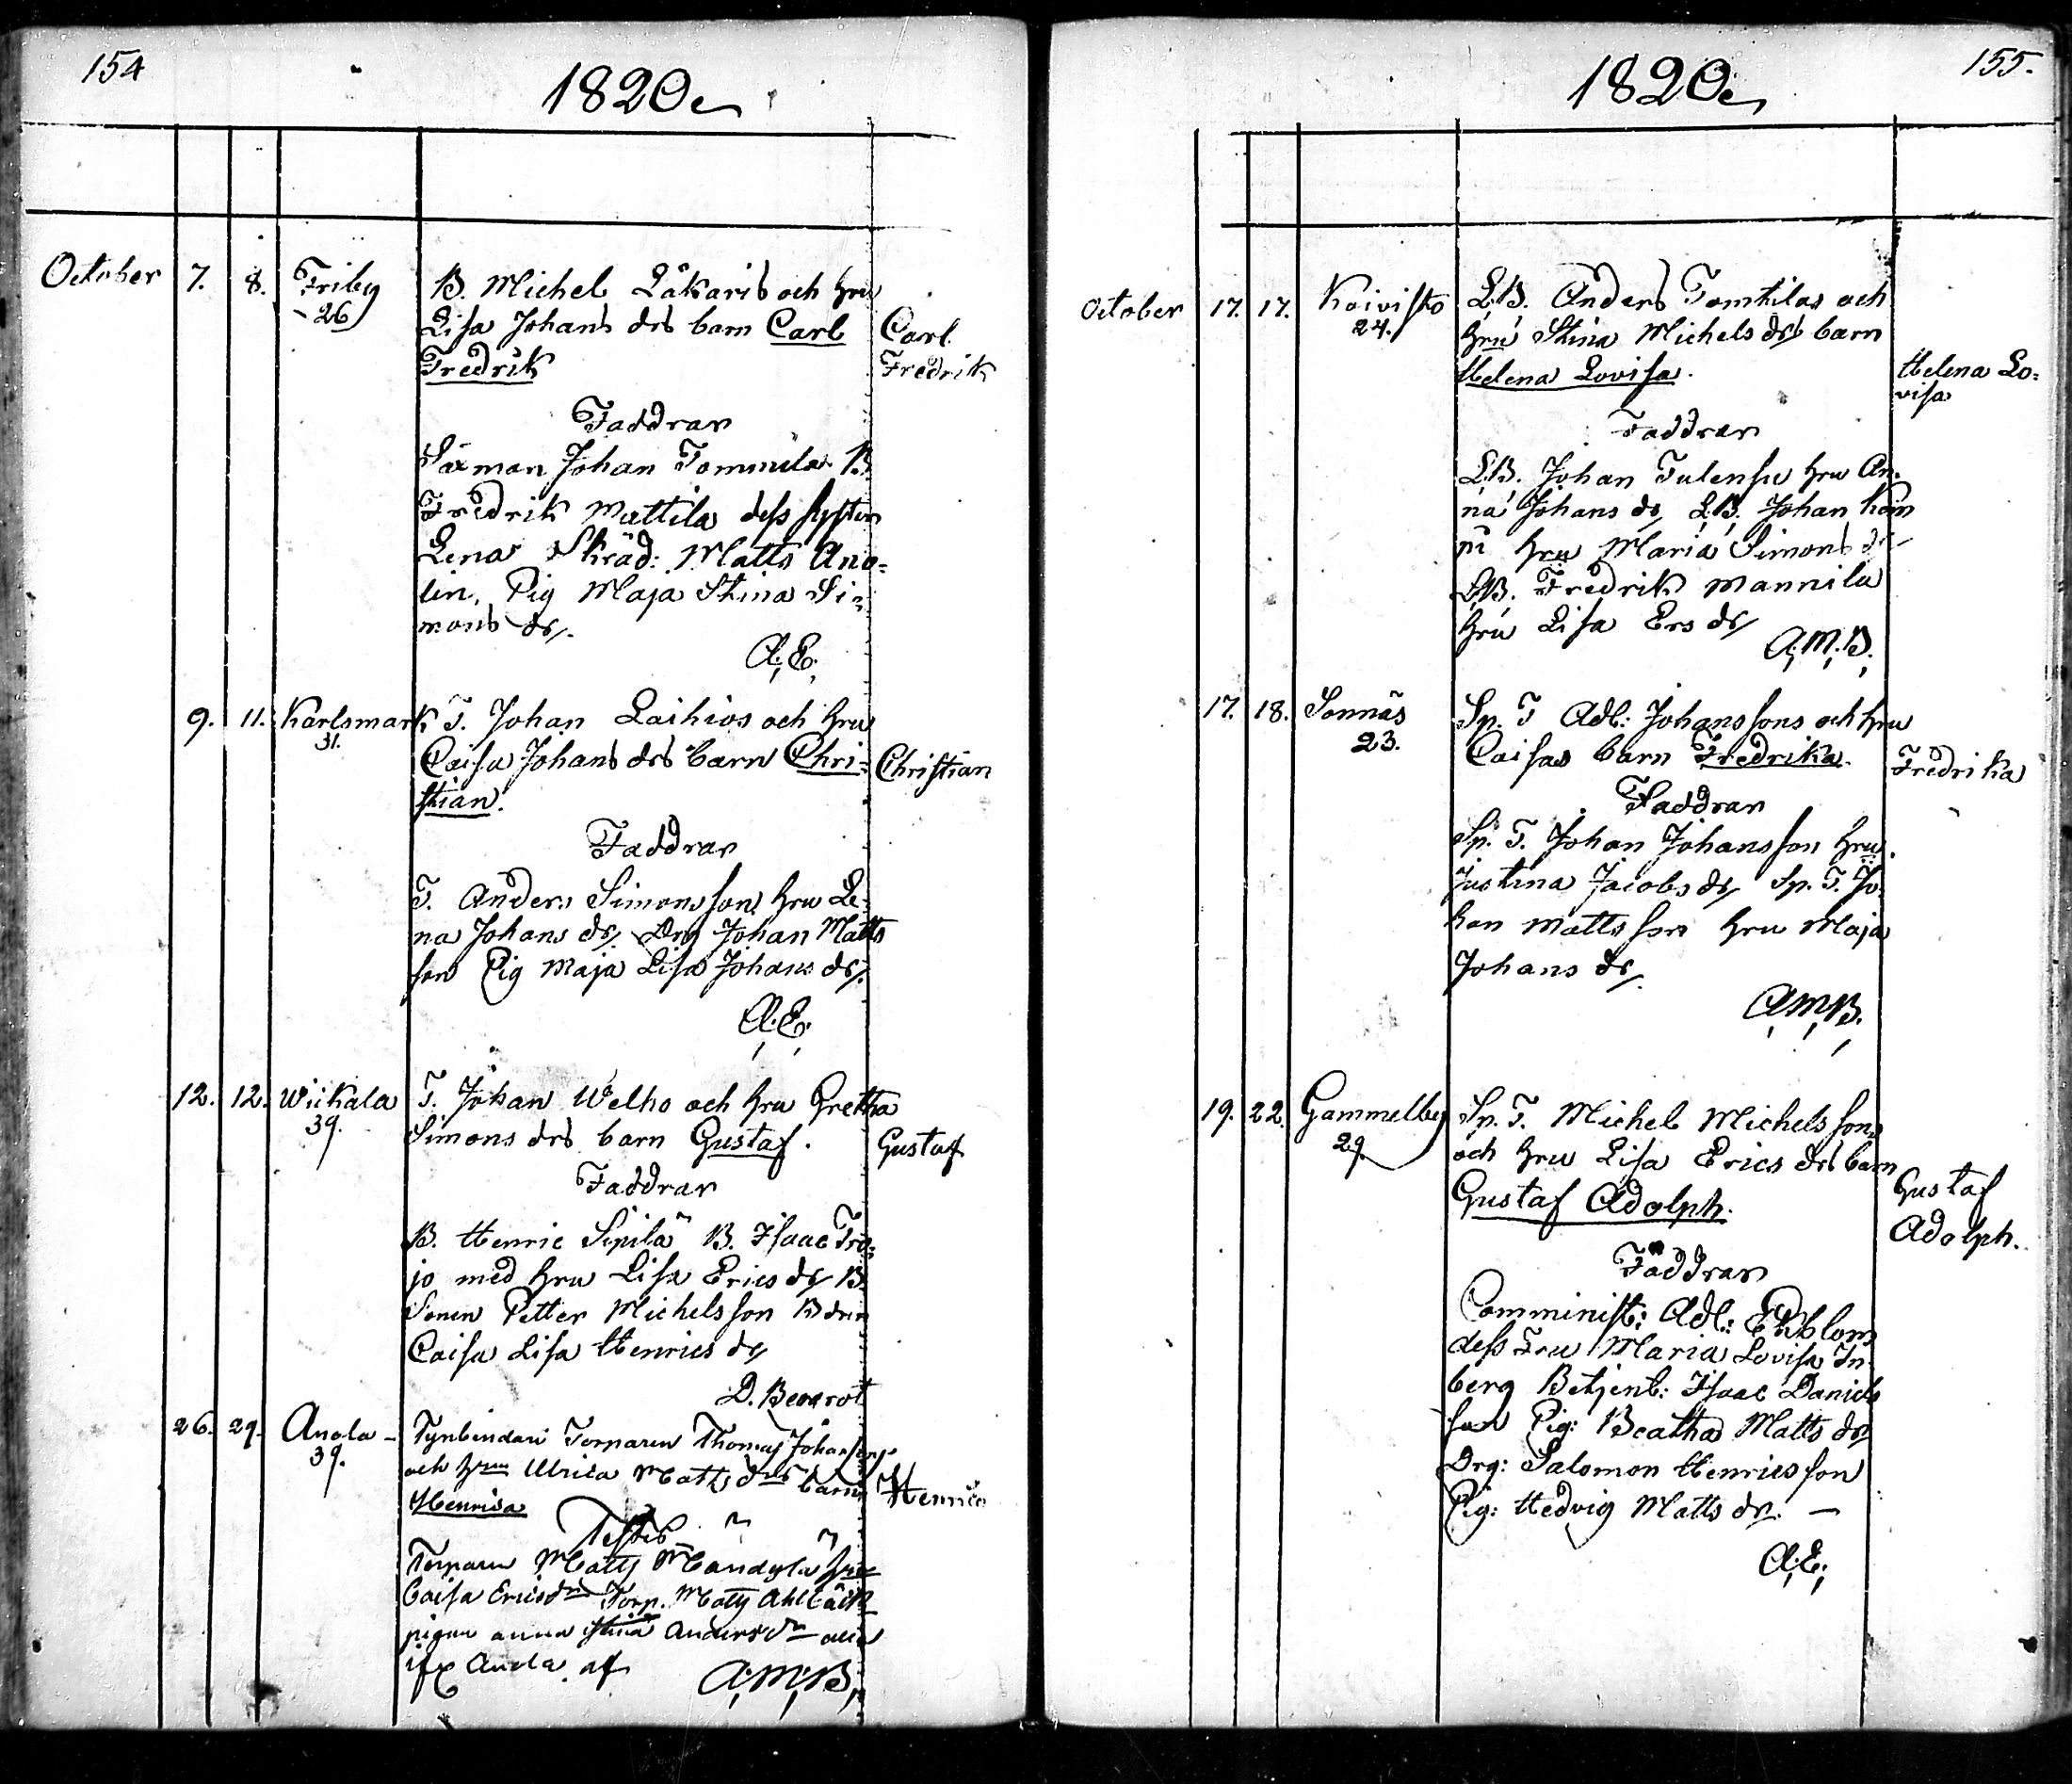 154
1820
October 7. 8. Friby B. Michel Låkaris och hru
26 Lisa Johans drs barn Carl Carl
Fredrik Fredrik
Faddrar
Säxman Johan Tommila B.
Fredrik Mattila dess syster
Lena Skräd: Matts Ano-
lin, Pig Maja Stina Si-
mons dr.
A.E.
9. 11. Karlsmark T. Johan Laihios och hru
31. Caisa Johans drs barn Chri- Christian
stian.
Faddrar
T. Anders Simonsson hru Le-
na Johans dr. Drg Johan Matts
son Pig Maja Lisa Johans dr.
A.E.
12. 12. Wiikala T. Johan Welho och hru Gretha
39. Simons drs barn Gustaf. Gustaf
Faddrar
B. Henric Sipilä B. Isaac Tro-
jo med hru Lisa Erics dr B.
Sonen Petter Michelsson B drn
Caisa Lisa Henrics dr
D. Beverot
26. 29. Anola Torparen Thomas Johansons
39. och hru Ulrica Matts drs barn
Henrica Henrica
Testes
Torparen Matts hru
Caisa Erics dr Torp. Matts Ahlbäck
pigan Anna Stina Anders dr
Anola af A.M.B.
1820 155.
October 17. 17. Koivisto L.B. Anders Tomtilas och
24. hru Stina Michels drs barn
Helena Lovisa. Helena Lo-
visa
Faddrar
L.B. Johan Tulensu hru An-
na Johans dr L.B. Johan Kam
pi hru Maria Simons dr
L.B. Fredrik Mannila
hru Lisa Ers dr
A.M.B.
17. 18. Sonnäs Sp. T Adl: Johanssons och hru
23. Caisas barn Fredrika. Fredrika
Faddrar
Sp. T. Johan Johansson hru
Justina Jacobs dr Sp. T. Jo-
han Mattsson hru Maja
Johans dr.
A.M.B.
19. 22. Gammelby Sp. T. Michel Michelsson
29. och hru Lisa Erics drs barn
Gustaf Adolph. Gustaf
Adolph.
Faddrar
Comminist: Adl: Ekblom
dess Fru Maria Lovisa In-
berg Betjent: Isaac Daniels
son Pig: Beatha Matts dr
Drg: Salomon Henricsson
Pig: Hedvig Matts dr. —
A.E.